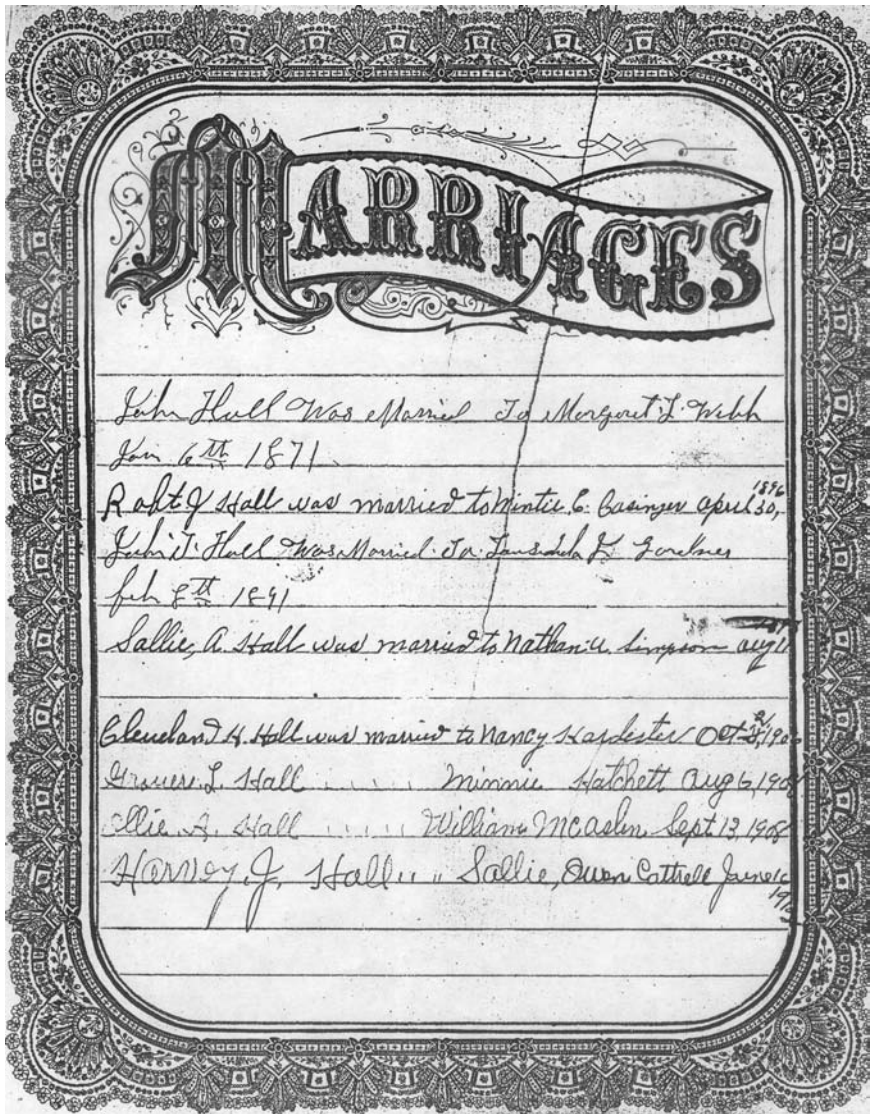 MARRIAGES
John Hall Was Married To Margaret L. Webb
Jan 6th 1871
1896
Robt J Hall was married to Mintie E. Basinger April 30,
John T. Hall Was Married To Gardner
feb 8th 1891
Sallie, A. Hall was married to Nathan A. Simpson aug 11
Cleveland H. Hall was married to Nancy Oct
Grover L. Hall " " " Minnie Hatchett Aug 6, 190
Ollie A. Hall " " " William McAslin Sept 13, 1908
Harvey, J, Hall " " Sallie, Owen Cottrell June